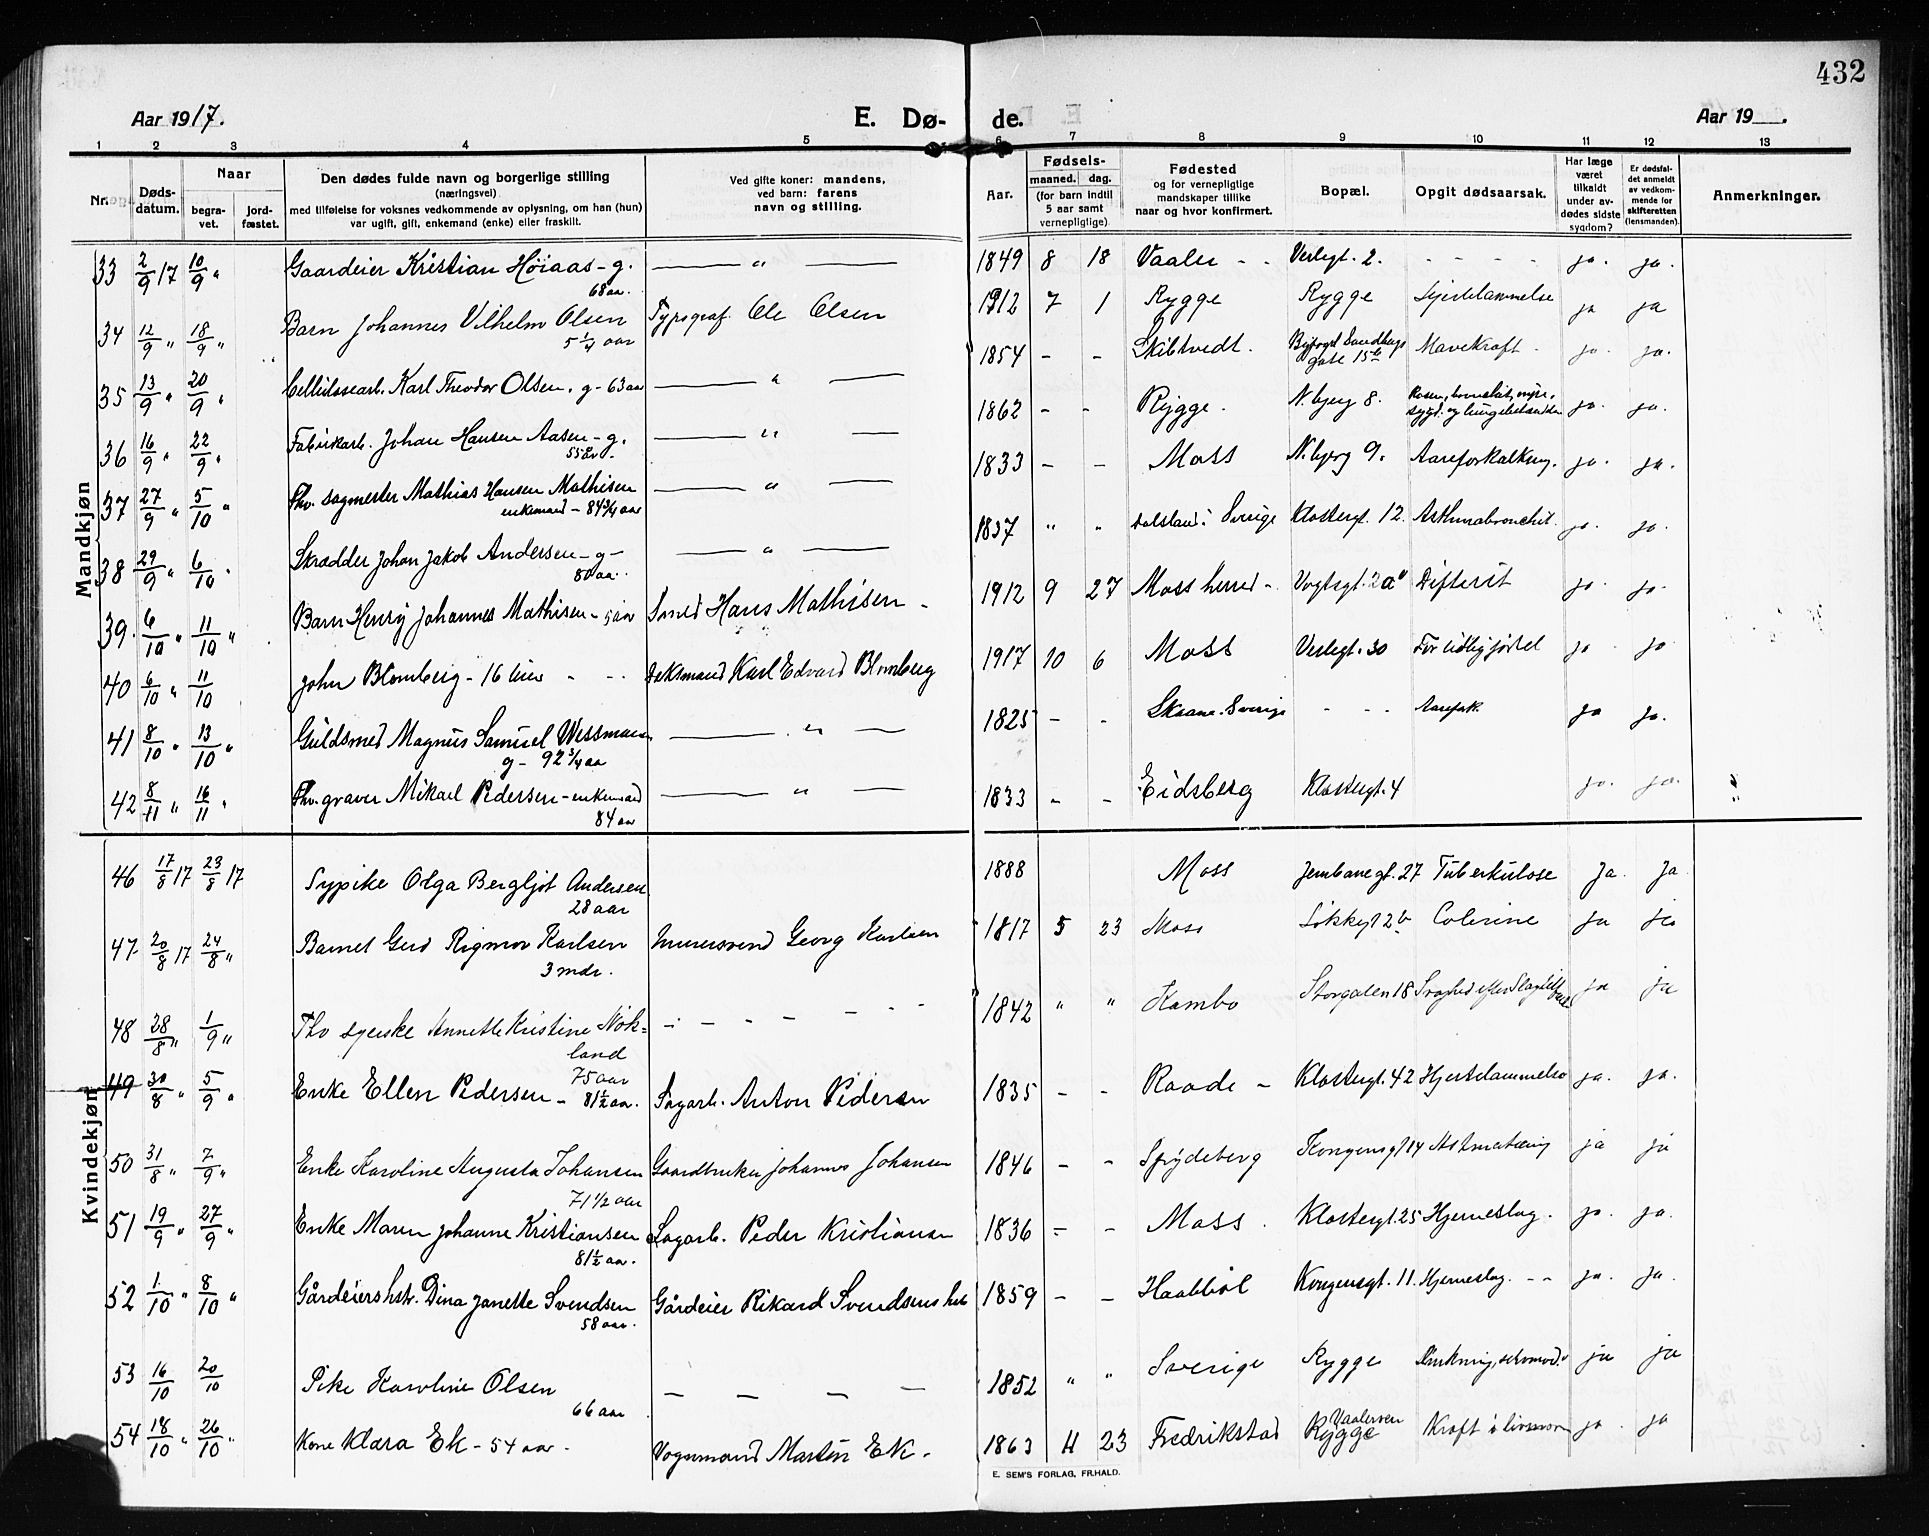 432
Aar 1917.
E. Dø- de.
Aar 19 .
1 2 3 4 5 6 7 8 9 10 11 12 13
Nr. Døds-datum. Naar begra-vet. jord-fæstet. Den dødes fulde navn og borgerlige stilling (næringsvei) med tilføielse for voksnes vedkommende av oplysning, om han (hun) var ugift, gift, enkemand (enke) eller fraskilt. Ved gifte koner: mandens, ved barn: farens navn og stilling. Aar. Fødsels- maaned. dag. (for barn indtil 5 aar samt vernepligtige) Fødested og for vernepligtige mandskaper tillike naar og hvor konfirmert. Bopæl. Opgit dødsaarsak. Har læge været tilkaldt under av-dødes sidste sygdom? Er dødsfal-det anmeldt av vedkom-mende for skifteretten (lensmanden). Anmerkninger.
Mandkjøn
33 2/9 17 10/9 " Gaardeier Kristian Høiaas - g. 68 aa. — " — 1849 8 18 Vaaler - - Verlegt. 2. - - - - ja. ja.
34 12/9 " 18/9 " Barn Johannes Vilhelm Olsen 5 1/4 aar Typograf. Ole Olsen 1912 7 1 Rygge Rygge Hjertelammelse ja ja
35 13/9 " 20/9 " Cellulosearb. Karl Theodor Olsen. g - 63 aa — " — 1854 - - Skibtvedt. Byfogd Sandbergs gate 15 Mavekraft - ja. ja.
36 16/9 " 22/9 " Fabrikarb. Johan Hansen Aasen - g. 55 aa — " — 1862 - - Rygge. N. bjerg 8. Rosen, bronchit, nyre-sygd. og lungebetændelse ja. ja.
37 27/9 " 5/10 " Fhv. sagmester Mathias Hansen Mathisen enkemand - 84 3/4 aar — " — 1833 - - Moss N. bjerg 9. Aareforkalkning. ja. ja.
38 29/9 " 6/10 " Skrædder Johan Jakob Andersen - g - 80 aa. — " — 1837 " " Dalsland i Sverige Klostergt. 12. Asthmabronchit. ja. ja.
39. 6/10 " 11/10 " Barn Henry Johannes Mathisen - 5 aar Smed Hans Mathisen - 1912 9 27 Moss herred - Vogtsgt. 2a Difterit ja. ja.
40 6/10 " 11/10 John Blomberg - 16 timer - - - Deksmand Karl Edvard Blomberg 1917 10 6 Moss Verlegt. 30 For tidlig fødsel ja - ja
41 8/10 " 13/10 " Guldsmed Magnus Samuel Wessman g - 92 3/4 aa — " — 1825 - - Skaane. Sverige - - - Aarefork. ja ja.
42 8/11 " 16/11 " Fhv. graver Mikael Pedersen - enkemand 84 aa — " — 1833 - - Eidsberg Klostergt. 4 ja. ja. "
Kvindekjøn
46 17/8 17 23/8 17 Sypike Olga Bergljot Andersen 28 aar 1888 Moss Jernbanegt. 27 Tuberkulose Ja. Ja
47 20/8 17 24/8 " Barnet Gerd Rigmor Karlsen 3 mdr. Murersvend Georg Karlsen 1817 5 23 Moss Løkkegt 2b Colerine ja ja
48 28/8 " 1/9 " Fhv syerske Annette Kristine Nøk=land 75 aar - - - - 1842 " " Kambo Storgaten 18 Svaghed efter Slagtilfælde ja ja
49 30/8 " 5/9 " Enke Ellen Pedersen - 81 1/2 aa. Sagarb. Anton Pedersen 1835 - - Raade - Klostergt. 42 Hjertelammelse ja. ja.
50 31/8 " 7/9 " Enke Karoline Augusta Johansen 71 1/2 aar Gaardbruker Johannes Johansen 1846 - - Spydeberg Kongensgt 14 Astmatæring ja ja
51 19/9 " 27/9 " Enke Maren Johanne Kristiansen 81 1/2 aa. Sagarb. Peder Kristiansen 1836 - - Moss. Klostergt. 25 Hjerneslag. ja. ja.
52 1/10 " 8/10 " Gårdeiers hstr. Dina Janette Svendsen 58 aar. Gårdeier Rikard Svendsens hstr 1859 - - Haabbøl Kongensgt. 11. Hjerneslag. - - ja. ja.
53 16/10 20/10 Pike Karoline Olsen 66 aar - - - - 1852 " " Sverige Rygge Drukning, selvmord. ja ja
54 18/10 " 26/10 " Kone Klara Ek - 54 aar - Vognmand Martin Ek. 1863 4 23 Fredrikstad Vaalerven Rygge Kræft i livmoren ja. ja
E. SEM'S FORLAG, FR.HALD.